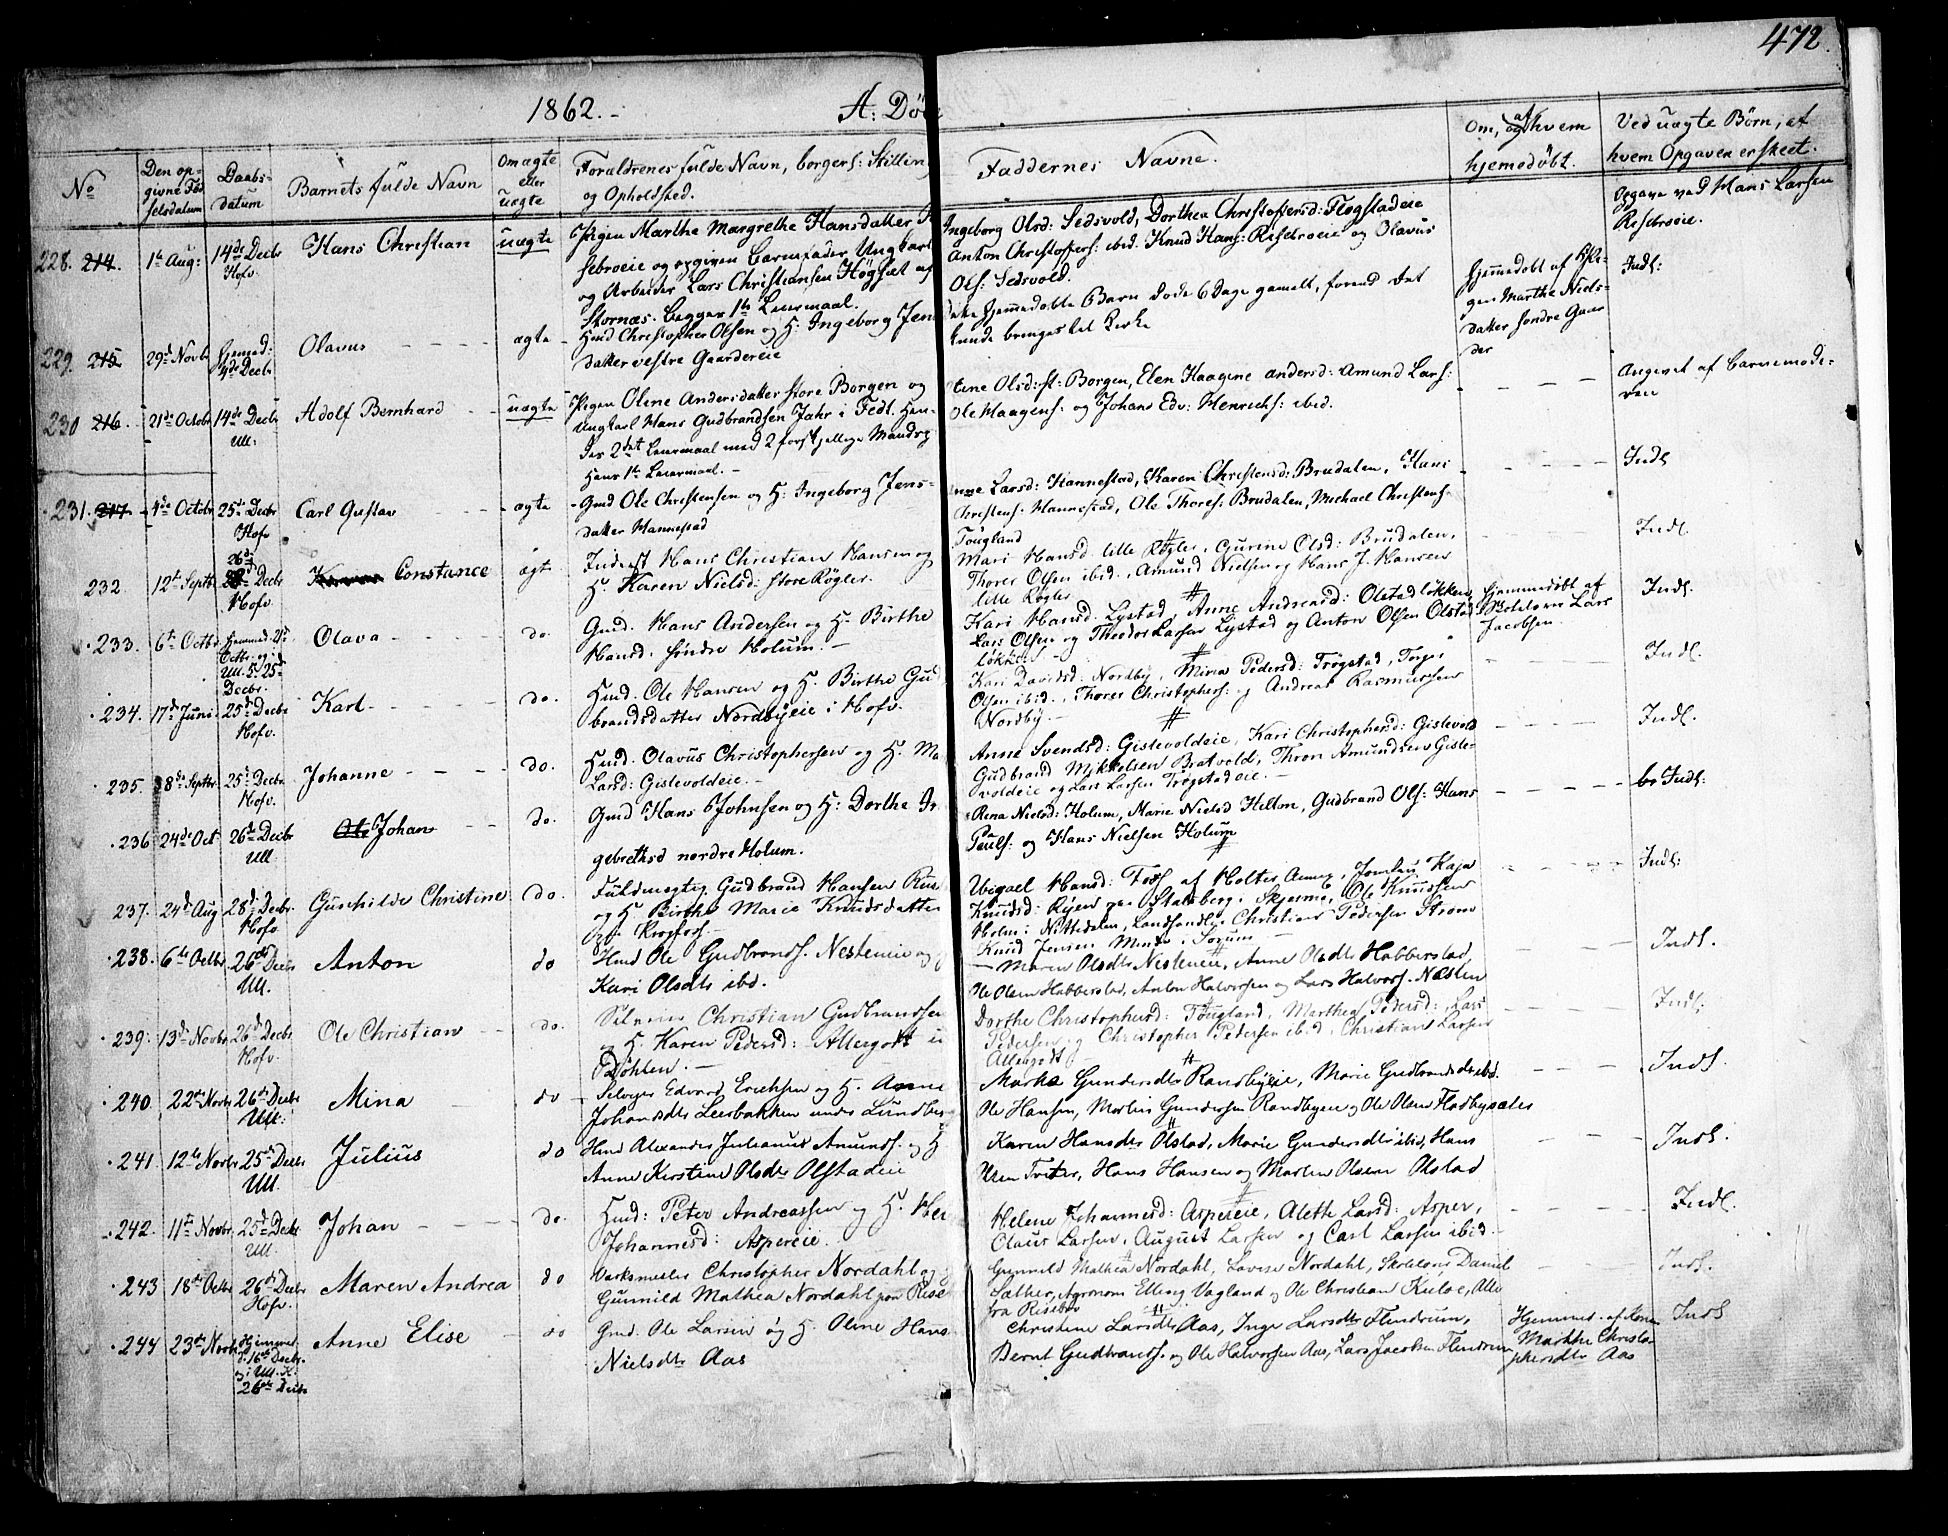 472.
1862.-
A: Dö
No
Den opgivne Fødselsdatum
Daabsdatum
Barnets fulde Navn
Om ægte eller uægte
Forældrenes fulde Navn, borgerl: Stilling og Opholdsted.
Faddernes Navne.
Om, og af hvem hjemedöbt.
Ved uægte Börn, af hvem Opgaven er skeet.
228. 214. 1ste Aug: 14de Decbr Hofv. Hans Christian uægte
Pigen Marthe Margrethe Hansdatter
sebroeie og opgiven Barnefader Ungkarl
og Arbeider Lars Christiansen Högset af
Stornæs. Begges 1ste Leiermaal.
Ingeborg Olsd: Sedsvold, Dorthea Christoffersd: Flogstadeie
Anton Christoffers: ibid. Knud Hans: Risebroeie og Olavus
Ols: Sedsvold.
Opgave ved Hans Larsen
Risebroeie.
229. 215 29de Novbr Hjemmed: 4de Decbr Olavus - - - ægte
Husmd Christopher Olsen og H: Ingeborg Jens
datter vestre Gaardereie
Hjemmedöbte Barn döde 6 Dage gamelt, forend det
kunde bringes til Kirke
Hjemmedöbt af Pi-
gen Marthe Niels-
datter söndre Gaar
der
Indl:
230 216. 21de Octobr 14de Decbr Ull: Adolf Bernhard - - uægte
Pigen Olene Andersdatter store Borgen og
Ungkarl Hans Gudbrandsen Jahr i Fedt. Hen-
des 2det Leiermaal med 2 forskjellige Mandsp
Hans 1ste Leiermaal. -
Olsd: st: Borgen, Elen Haagine Andersd: Amund Lars:
Ole Haagens: og Johan Edv: Henrichs: ibid.
Angivet af Barnemode-
ren
231. 217 4de Octobr 25de Decbr Hofv Carl Gustav - - - ægte
Gmd Ole Christensen og H: Ingeborg Jens-
datter Hannestad
Larsd: Hannestad, Karen Christensd: Brudalen, Hans
Christens: Hannestad, Ole Thores: Brudalen, Michael Christens:
Tougland
Indl
232. 12te Septbr 26de Decbr Hofv. Constance ægte
Inderst Hans Christian Hansen og
H. Karen Nielsd: store Røgler.
Mari Hansd. lille Røgler, Gurine Olsd: Brudalen,
Thores Olsen ibid., Amund Nielsen og Hans J. Hansen
lille Røgler
Indl.
233. 6te Octbr Hjemmed. Ull. 25de Decbr. Olava - - do.
Gmd. Hans Andersen og H. Birthe
Hansd. söndre Holum. -
Kari Hansd: Lystad, Anne Andreasd: Olstadlökken,
Lars Olsen og Theodor Larsen Lystad og Anton Olsen Olstad-
lökken -
Hjemmedöbt af
Skolelærer Lars
Jacobsen.
Indl.
234. 17de Juni 25de Decbr Hofv. Karl - - - do.
Husmd. Ole Hansen og H. Birthe Gud
brandsdatter Nordbyeie i Hofv.
Kari Davidsd: Nordby, Mina Pedersd: Trögstad, Torger
Olsen ibid., Thores Christophers: og Andreas Rasmussen
Nordby. -
Indl.
235. 8de Septbr. 25de Decbr Hofv. Johanne - - - do.
Husmd. Olavus Christophersen og H. Ma
Larsd: Gislevoldeie. -
Anne Svendsd: Gislevoldeie, Kari Christophersd: Gislevold
Gudbrand Mikkelsen Bratvold, Thron Amundsen Gisle-
voldeie og Lars Larsen Trøgstadeie. -
Indl.
236 24de Oct. 26de Decbr Ull. Johan - - do.
Gmd Hans Johnsen og H: Dorthe In
gebrethsd nordre Holum.
Rena Nielsd: Holum, Marie Nielsd Helton, Gudbrand Ols: Hans
Pauls: og Hans Nielsen Holum
Indl:
237. 24de Aug 28de Decbr. Hofv Gunhilde Christine do.
Fuldmægtig Gudbrand Hansen
og H. Birthe Marie Knudsdatter
Abigael Hansd: Foss af Holter Annex, Jomfru Kaja
Knudsd: Ryen paa Stalsberg i Skjermo, Ole Knudsen
Holm i Nittedalen, Landhandler Christian Pedersen Ström
Knud Jensen i Sorum -
Indl:
238. 6te Octbr. 26de Decbr Ull. Anton do
Husmd Ole Gudbrands. Nesteneie og
Kari Olsdtr ibd.
- Maren Olsdtr Nesteneie, Anne Olsdtr Habberstad,
Ole Olsen Habberstad, Anton Halvorsen og Lars Halvors. Næsten
Indl.
239. 13de Novbr. 26de Decbr Hofv. Ole Christian - - do.
Selveier Christian Gudbrandsen
og H. Karen Pedersd: Allergodt i
Döhlen. -
Dorthe Christophersd: Tougland, Marthea Pedersd: Lars
Pedersen og Christopher Pedersen ibid., Christian Larsen
Allergodt
Indl:
240. 22de Novbr 26de Decbr Ull. Mina do -
Selveier Edvard Erichsen og H. Anne
Johansdtr Leerbakken under Lundber
Marthe Gundersdtr Randbyeie, Marie Gudbrandsdtr ibd.
Ole Hansen, Morten Gundersen Randbyeie og Ole Olsen Fladbysæter
Indl.
241. 12te Novbr 25de Decbr Ull. Julius do
Husmd Alexander Julianus Amunds. og H
Anne Kerstine Olsdtr Olstadeie
Karen Hansdtr Olstad, Marie Gundersdtr ibid, Hans
Olsen Tveter, Hans Hansen og Morten Olsen Olstad
Indl.
242. 11te Novbr. 25de Decbr Ull. Johan - - - do.
Husmd: Peter Andreassen og H. Hel
Johannesd: Aspereie.
Helene Johannesd: Aspereie, Alette Larsd: Asper,
Claus Larsen, August Larsen og Carl Larsen ibid -
Indl.
243 18de Octbr 26de Decbr Hofv. Maren Andrea do
Værksmester Christopher Nordahl og
Gunnild Mathea Nordahl paa Rise
Gunnild Mathea Nordahl, Lovise Nordahl, Skolelærer Daniel
Sæther, Agronom Elling Vagland og Ole Christian Kulæ, Alle
fra Risebro
Indl.
244 23de Novbr Hjemmed. d. 16de Decbr. og i Ull. K. 26de Decbr Anne Elise - do
Gmd. Ole Larsen og H. Oline Hans
Nielsdtr Aas
Christine Larsdtr Aas, Inger Larsdtr Flendrum,
Bernt Gudbrands. og Ole Halvorsen Aas, Lars Jacobsen Flendrum
Hjemmed. af Kone
Marthe Christo
phersdtr Aas
Indl